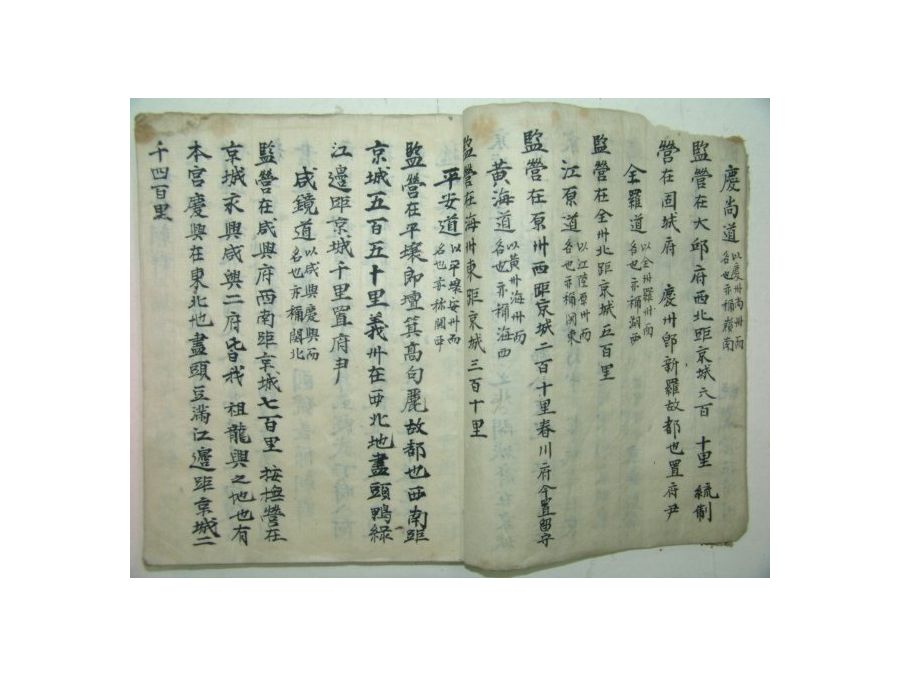 慶尚道以慶州尚州而名也亦稱嶺南
監營在大邱府西北距京城六百 十里 統制
營在固城府 慶州卽新羅故都也置府尹
全羅道以全州羅州而名也亦稱湖西
監營在全州北距京城五百里
江原道以江陵原州而名也亦稱関東
監營在原州西距京城二百十里春川府今置留守
黃海道以黃州海州而名也亦稱海西
監營在海州東距京城三百十里
平安道以平壤安州而名也亦稱関西
監營在平壤即壇箕高句麗故都也西南距
京城五百五十里義州在西北地盡頭鴨綠
江邊距京城千里置府尹
咸鏡道以咸興慶興而名也亦稱関北
監營在咸興府西南距京城七百里 按撫營在
京城永興咸興二府皆我 祖龍興之地也有
本宮慶興在東北地盡頭豆滿江邊距京城二
千四百里